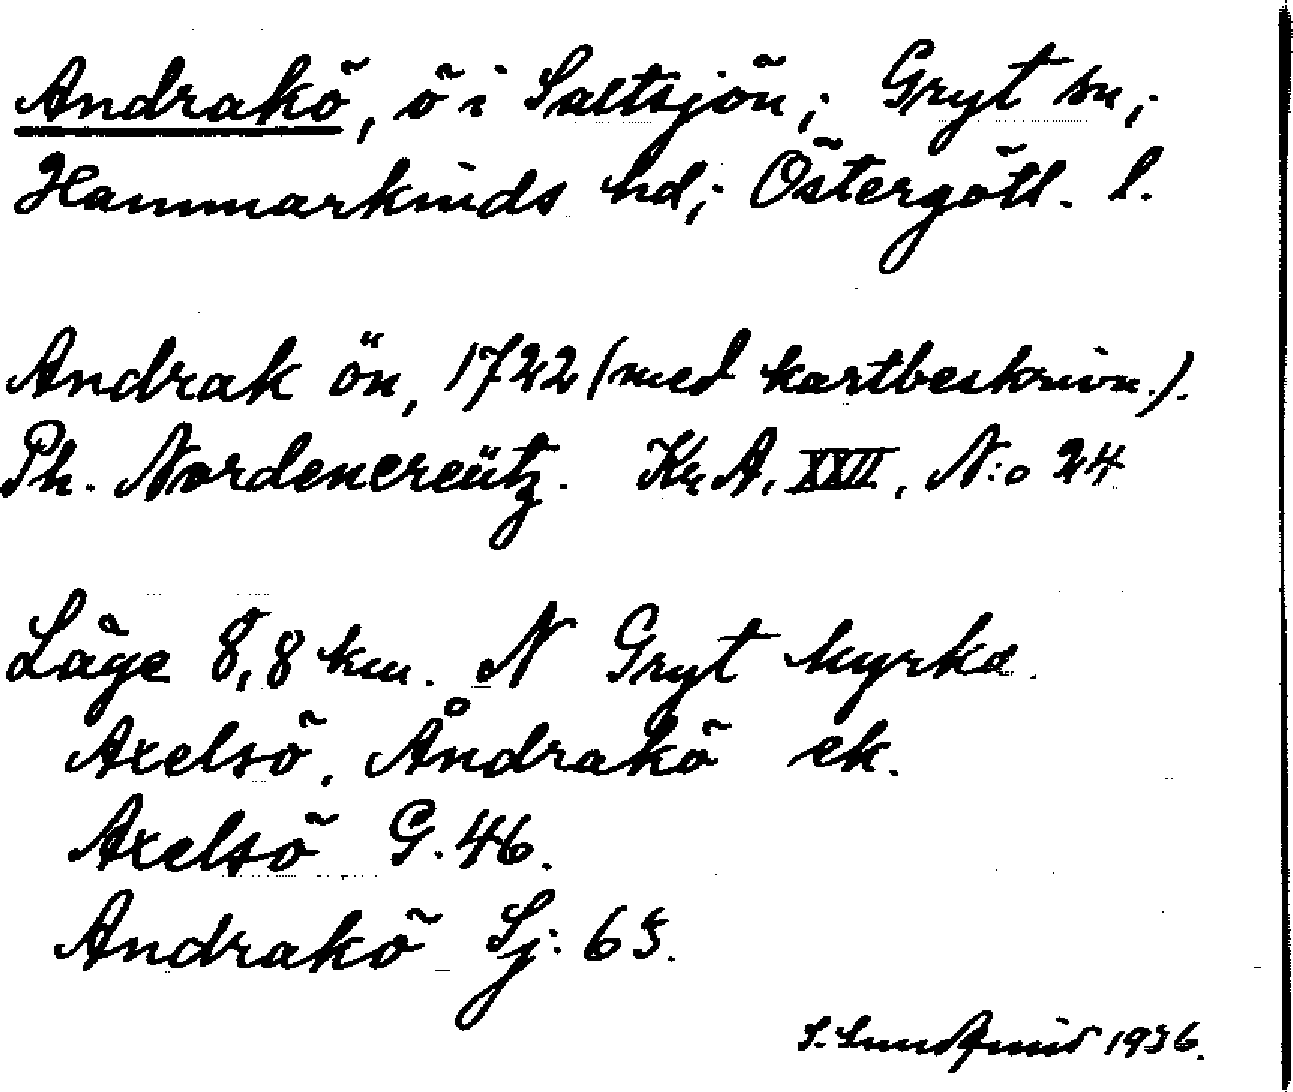 Andrakö, ö i Saltsjön; Gryt sn;
Hammarkinds hd; Östergötl. l.
Andrak ön, 1722 (med kartbeskrivn.).
Ph. Nordencreütz. Kr. A. XXII, N:o 24
Läge 8,8 km. N Gryt kyrka.
Axelsö, Åndrakö ek.
Axelsö G. 46.
Andrakö Sj: 63.
S. Lundqvist 1936.